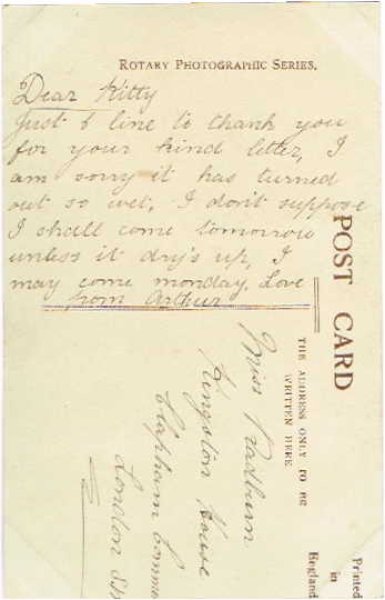 ROTARY PHOTOGRAPHIC SERIES.
Dear Kitty
Just a line to thank you
for your kind letter, I
am sorry it has turned
out so wet, I don't suppose
I shall come tomorrow
unless it dry's up, I
may come monday, Love
from Arthur
POST CARD
THE ADDRESS ONLY TO BE
WRITTEN HERE
Miss
Kingston House
Clapham Common
London
Printed
in
England